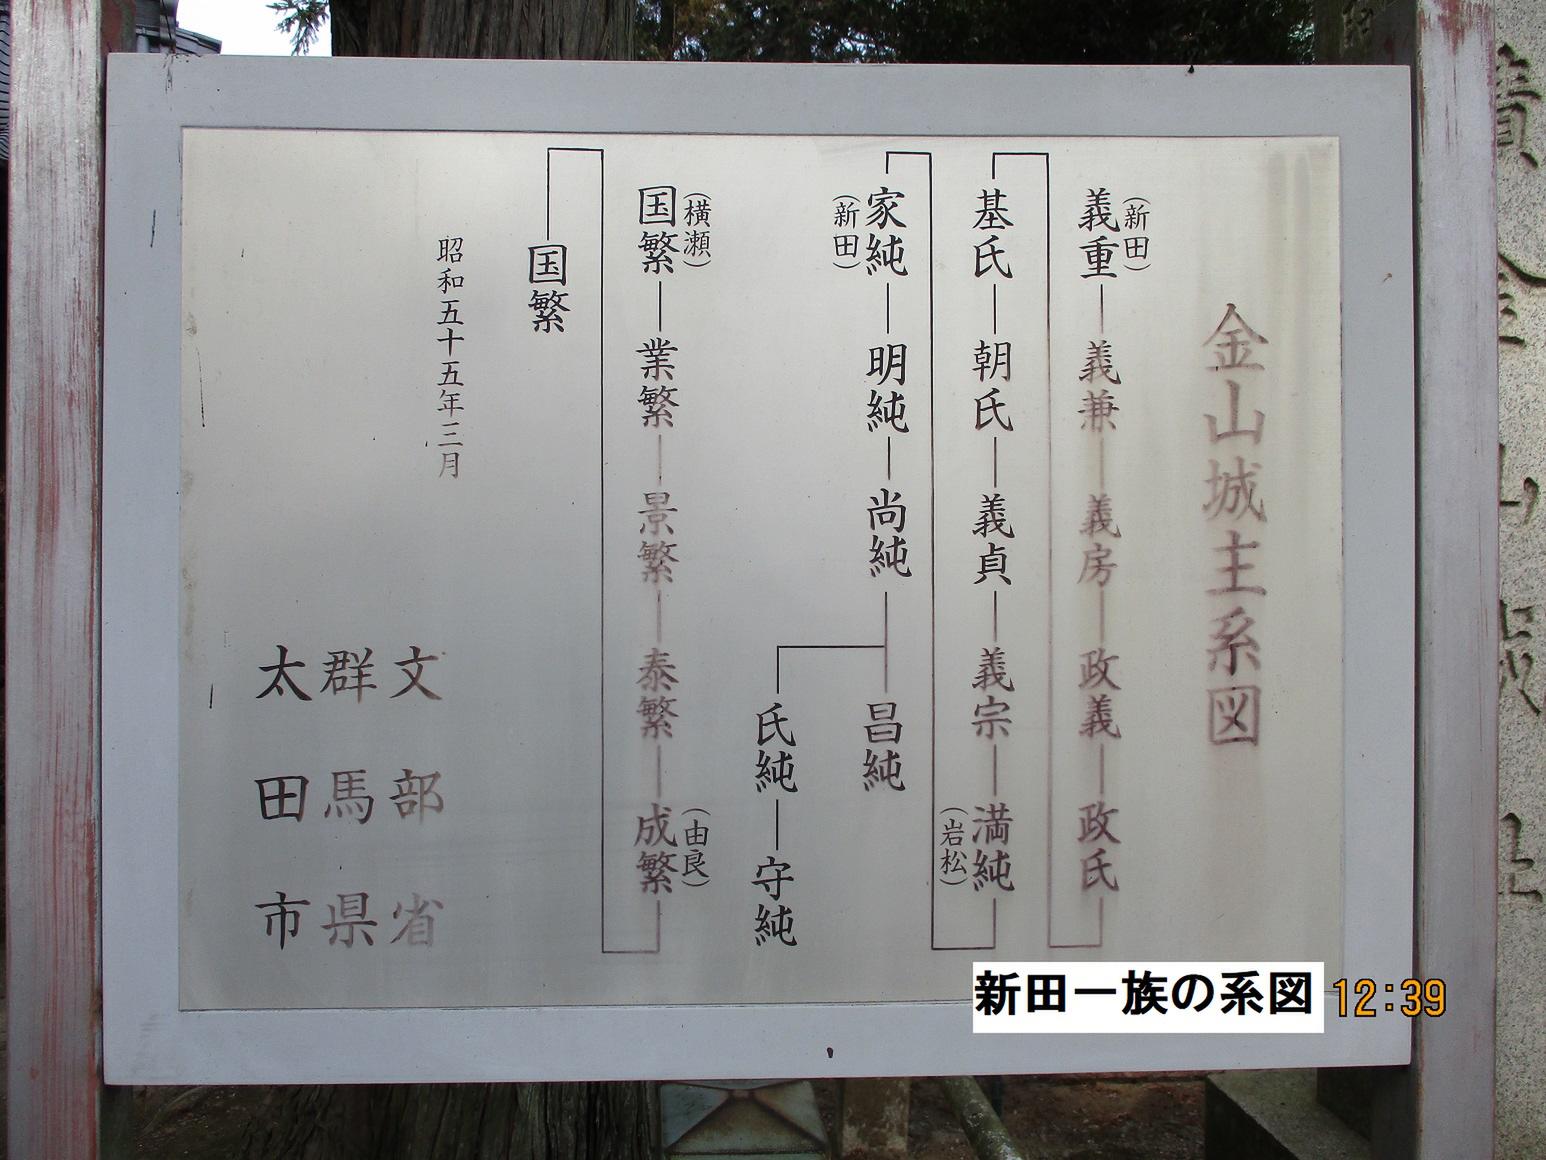 金山城主系図
(新田)
義重―義兼―義房―政義―政氏
基氏―朝氏―義貞―義宗―満純
(岩松)
家純―明純―尚純―昌純
(新田)
氏純―守純
(横瀬)
国繁―業繁―景繁―泰繁―成繁
(由良)
国繁
昭和五十五年三月
文部省
群馬県
太田市
新田一族の系図
12:39